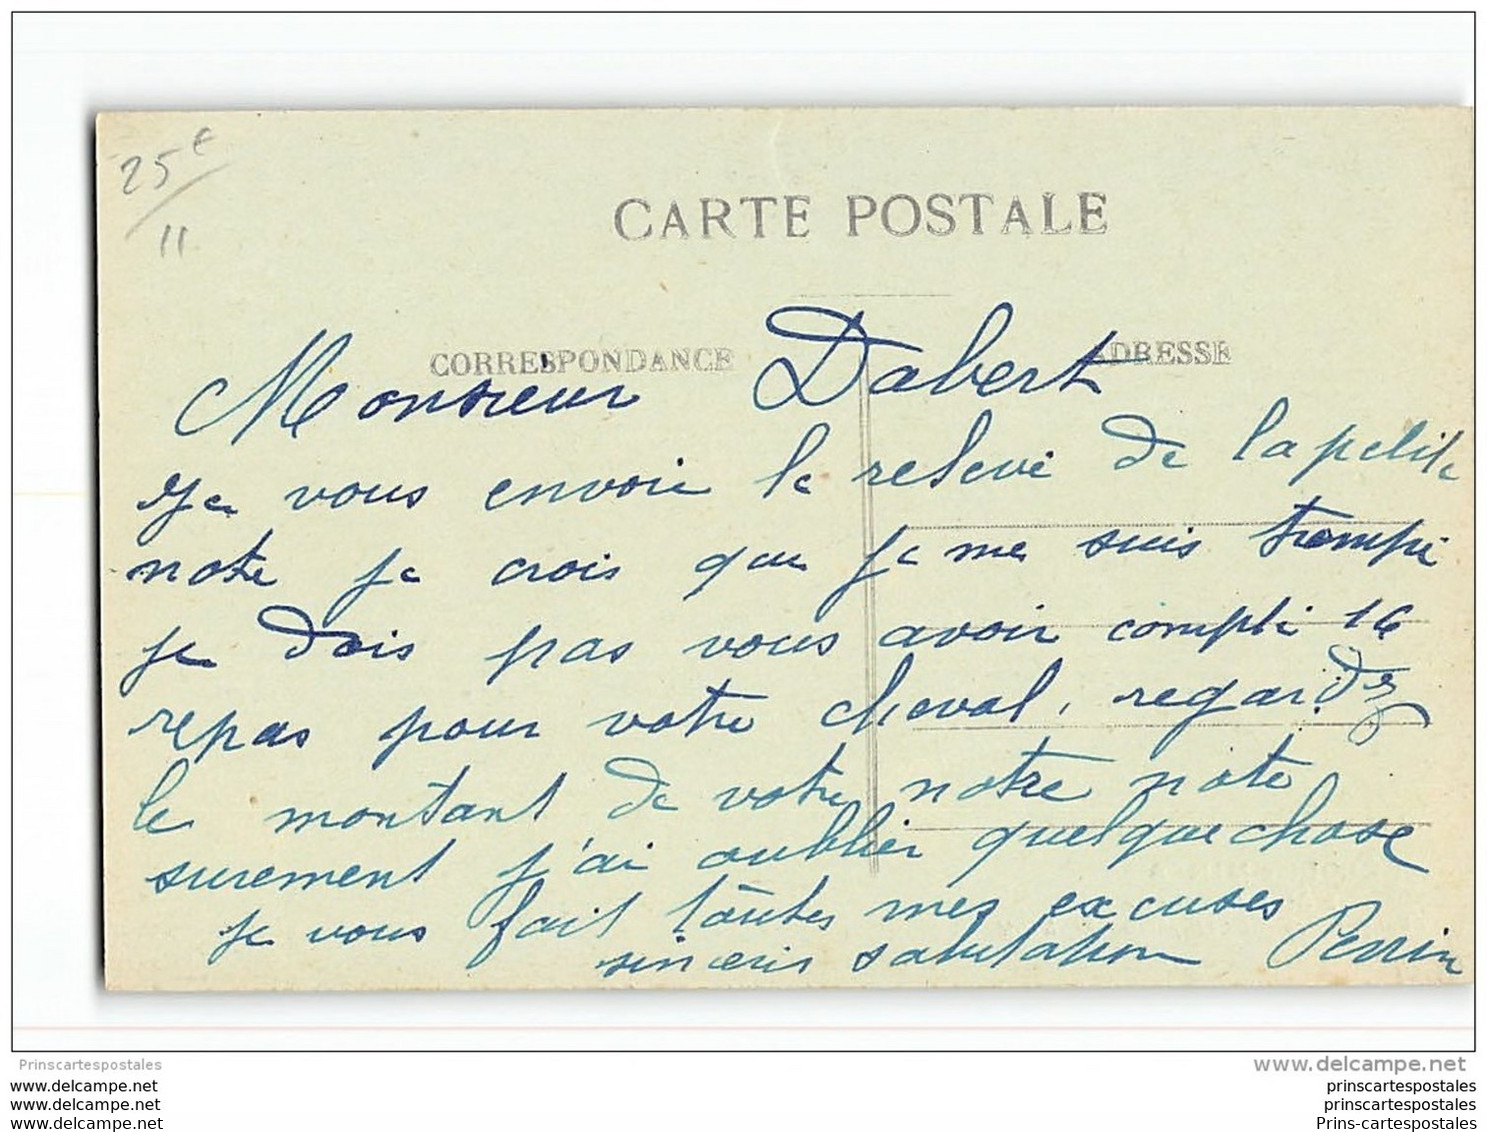 25€
11
CARTE POSTALE
CORRESPONDANCE
ADRESSE
Monsieur Dabert
Je vous envoie le relevé de la petite
note je crois que je me suis trompé
je dois pas vous avoir compté 16
repas pour votre cheval, regardez
le montant de votre notre note
surement j'ai oublier quelque chose
je vous fait toutes mes excuses
sinceris salutation Perrin
Prinscartespostales
www.delcampe.net
www.delcampe.net
www.delcampe.net
www.delcampe.net
prinscartespostales
prinscartespostales
Prins-cartespostales